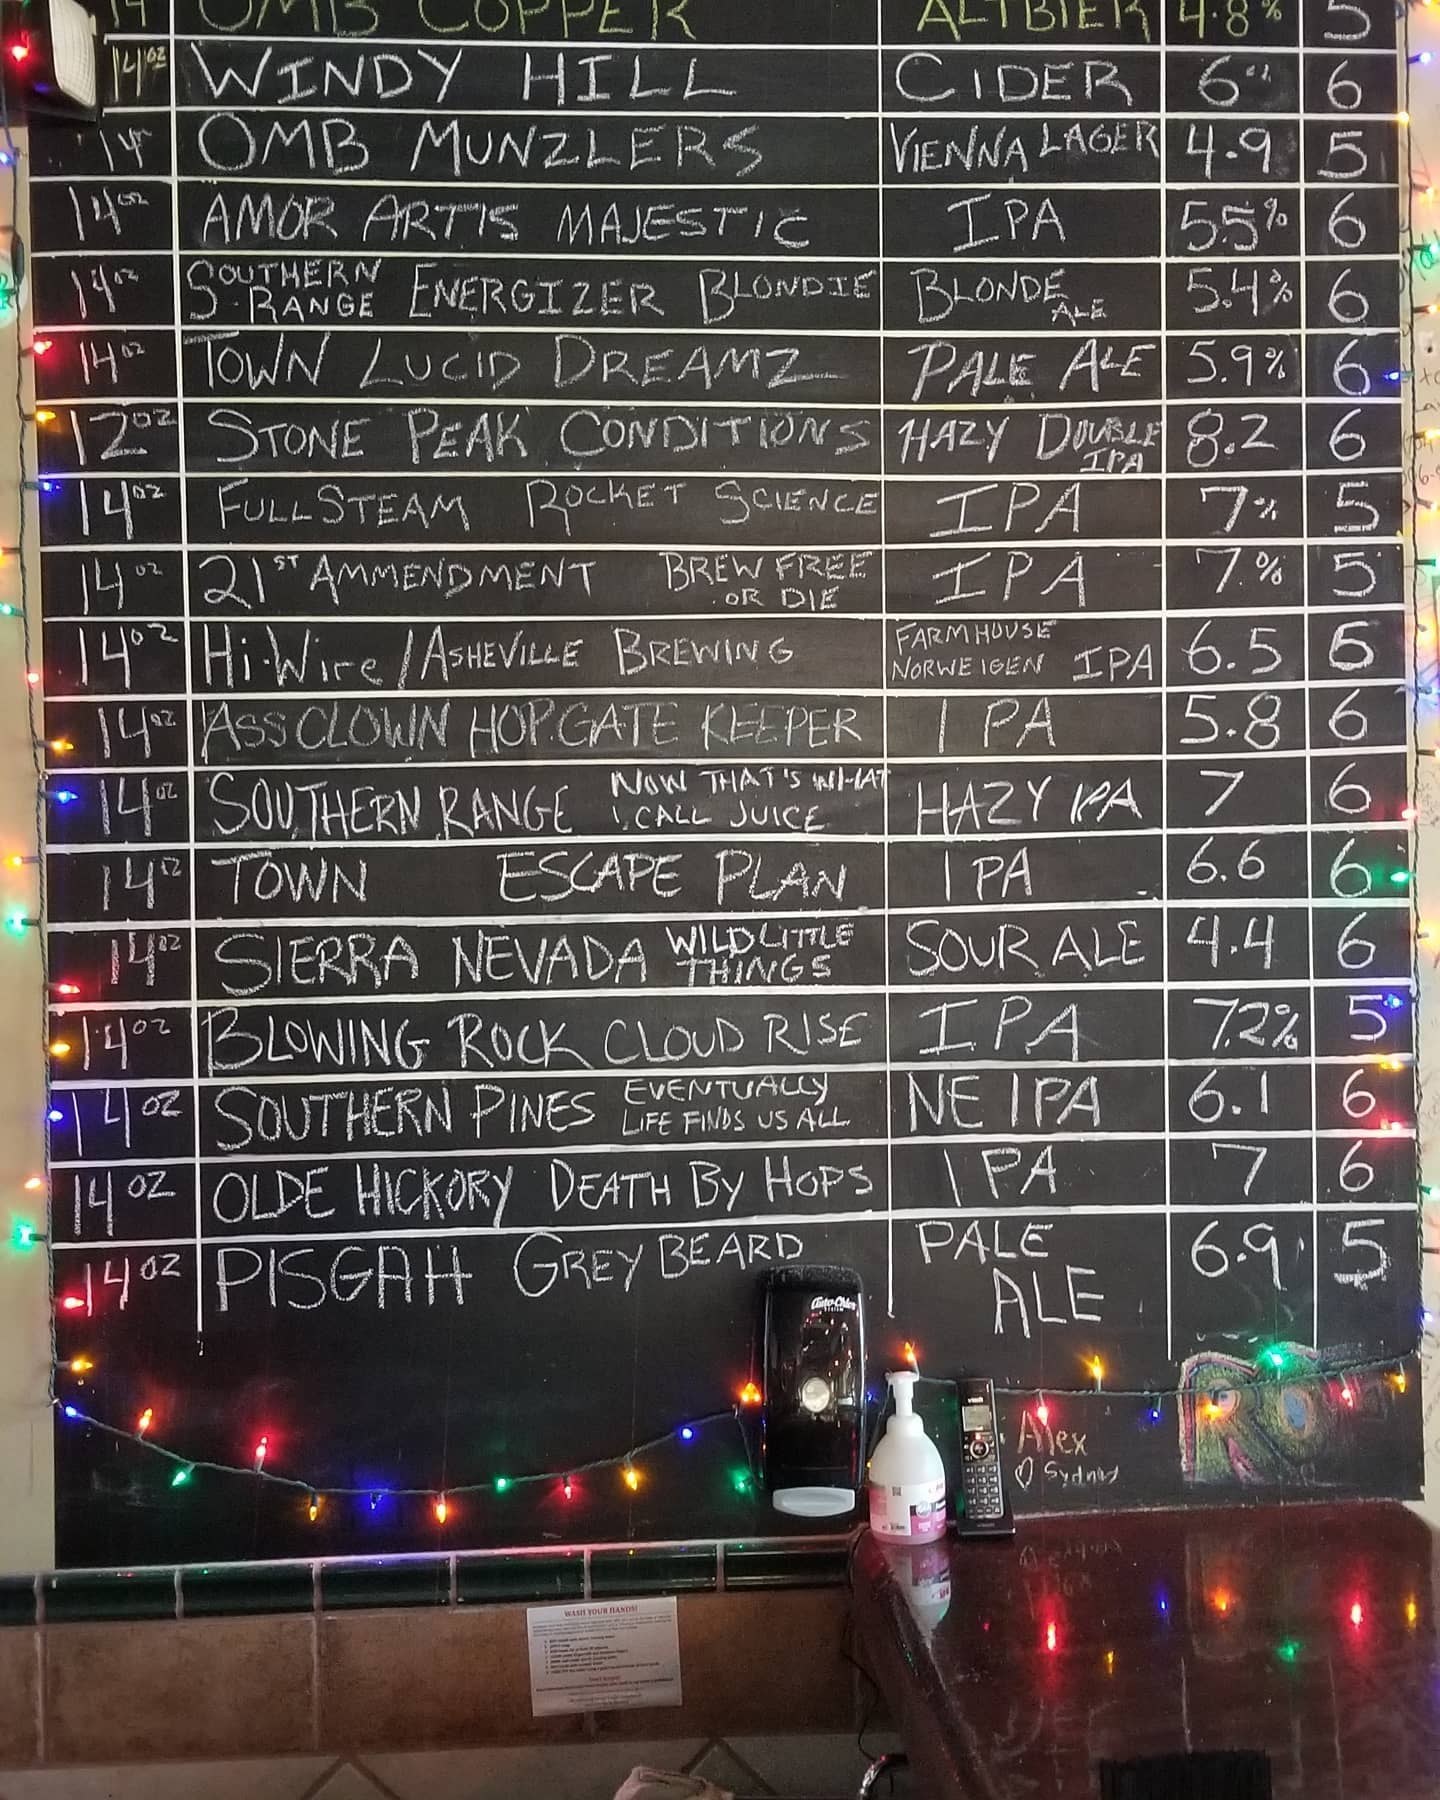 14 OMB COPPER ALTBIER 4.8% 5
14oz WINDY HILL CIDER 6% 6
14oz OMB MUNZLERS VIENNA LAGER 4.9 5
14oz AMOR ARTIS MAJESTIC IPA 5.5% 6
14oz SOUTHERN RANGE ENERGIZER BLONDIE BLONDE ALE 5.4% 6
14oz TOWN LUCID DREAMZ PALE ALE 5.9% 6
12oz STONE PEAK CONDITIONS HAZY DOUBLE IPA 8.2 6
14oz FULLSTEAM ROCKET SCIENCE IPA 7% 5
14oz 21ST AMMENDMENT BREW FREE OR DIE IPA 7.% 5
14oz Hi-Wire/ASHEVILLE BREWING FARMHOUSE NORWEIGEN IPA 6.5 5
14oz ASS CLOWN HOP.GATE KEEPER IPA 5.8 6
14oz SOUTHERN RANGE NOW THAT'S WHAT I CALL JUICE HAZY IPA 7 6
14oz TOWN ESCAPE PLAN IPA 6.6 6
14oz SIERRA NEVADA WILD LITTLE THINGS SOUR ALE 4.4 6
14oz BLOWING ROCK CLOUD RISE IPA 7.2% 5
14oz SOUTHERN PINES EVENTUALLY LIFE FINDS US ALL NE IPA 6.1 6
14oz OLDE HICKORY DEATH BY HOPS IPA 7 6
14oz PISGAH GREYBEARD PALE ALE 6.9 5
Auto-Chlor
SYSTEM
Alex
Sydney
WASH YOUR HANDS!